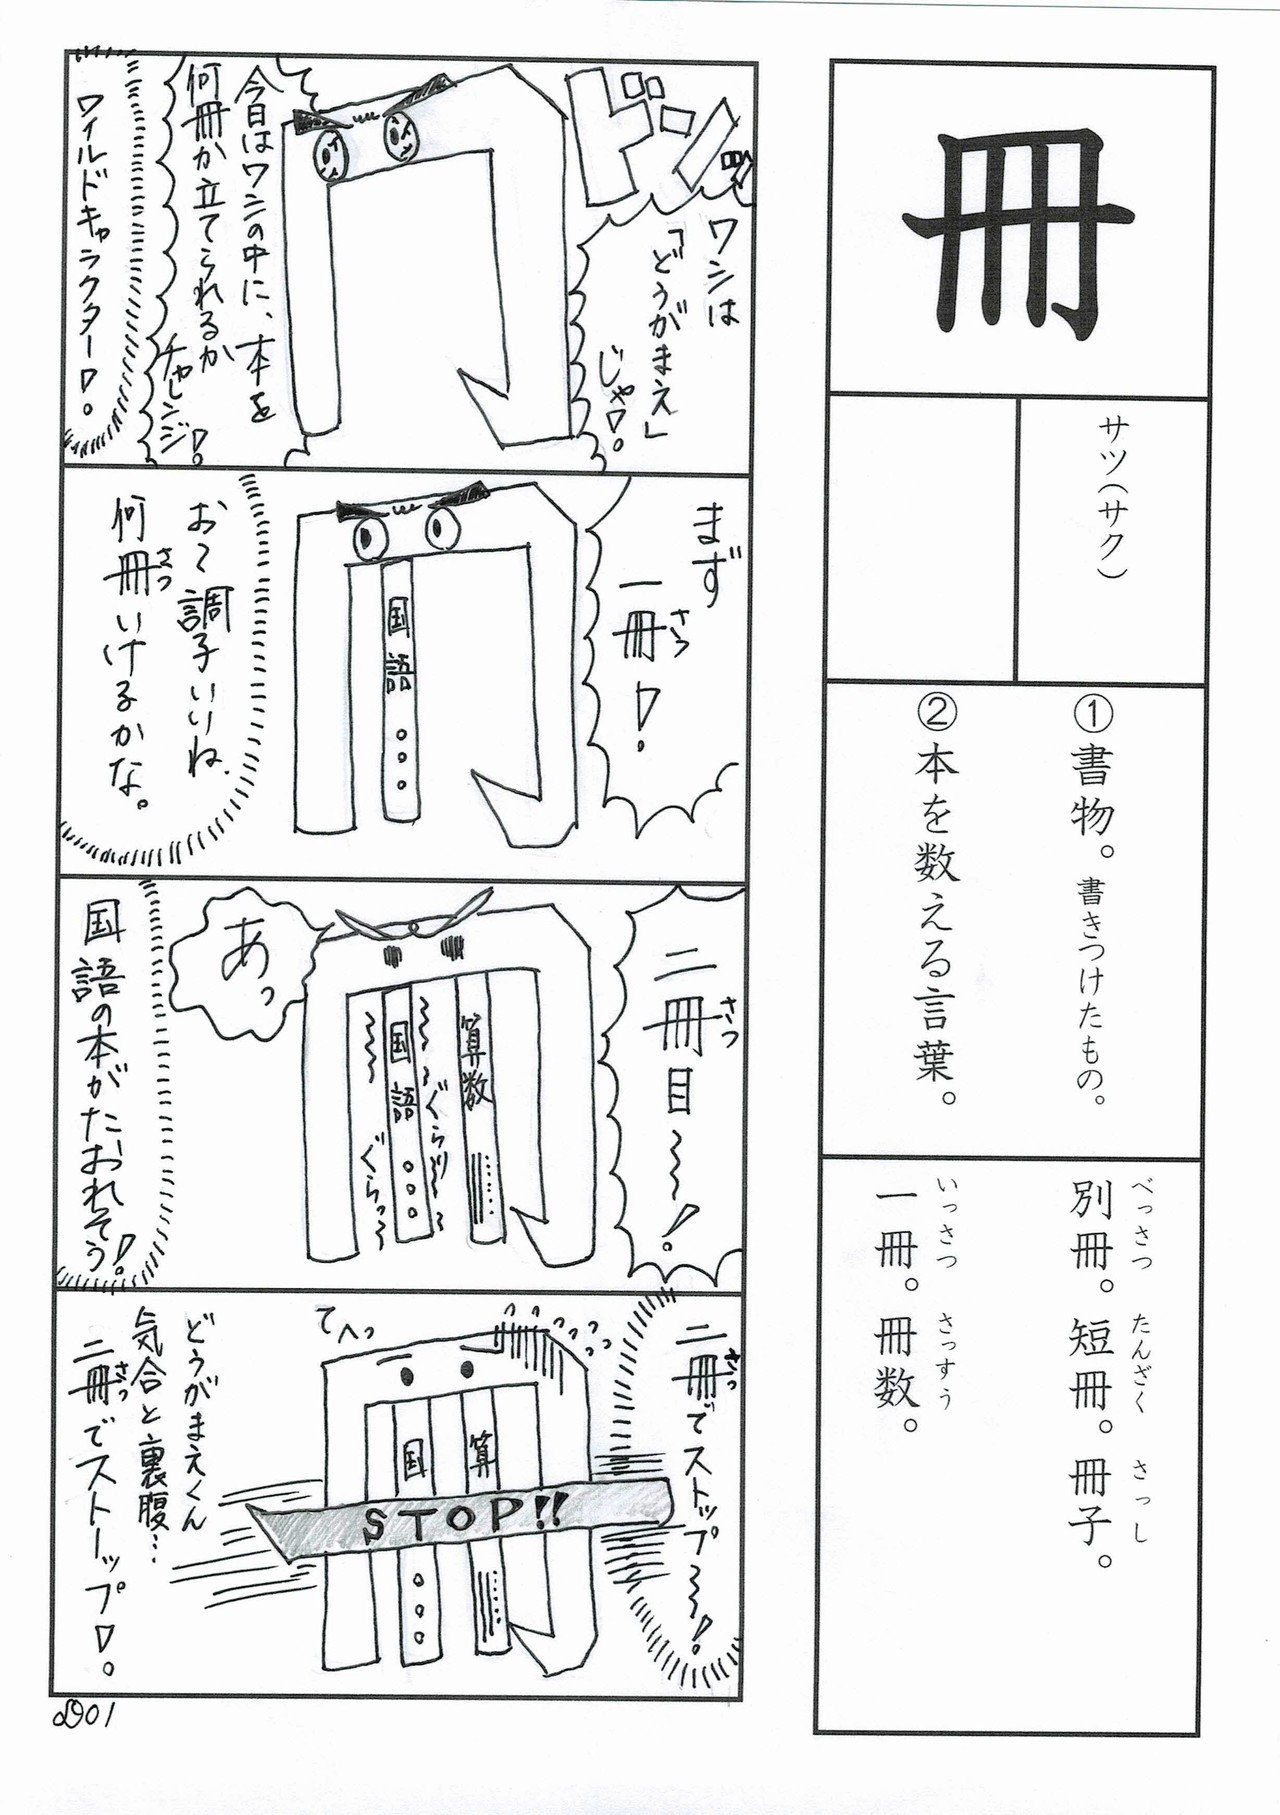 冊
サツ（サク）
①書物。書きつけたもの。
②本を数える言葉。
別冊。短冊。冊子。
べっさつ たんざく さっし
一冊。冊数。
いっさつ さっすう
ドドンッ
ワシは
「どうがまえ」
じゃ!。
今日はワシの中に、本を
何冊か立てられるか
チャレンジ!
ワイルドキャラクター!。
まず
一冊!
さつ
国語
お〜調子いいね、
何冊いけるかな。
さつ
二冊目〜!
さつ
算数
国語
ぐらり〜
ぐらっ〜
あっ
国語の本がたおれそう!
二冊でストップ〜!
さつ
てへっ
算
国
STOP!!
どうがまえくん
気合と裏腹…
二冊でストーップ!。
さつ